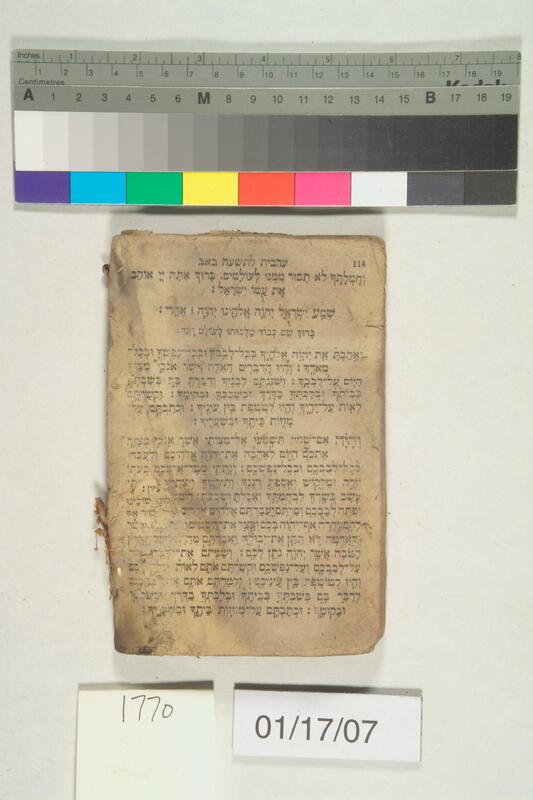 Inches 1 2 3 4 5 6 7 8
Centimetres 1 2 3 4 5 6 7 8 9 10 11 12 13 14 15 16 17 18 19
Kodak
A 1 2 3 4 5 6 M 8 9 10 11 12 13 14 15 B 17 18 19
ערבית לתשעה באב 114
וְחֶמְלָתְךָ לֹא תָסוּר מִמֶּנּוּ לְעוֹלָמִים. בָּרוּךְ אַתָּה יְיָ אוֹהֵב
אֶת עַמּוֹ יִשְׂרָאֵל:
שְׁמַע יִשְׂרָאֵל יְהֹוָה אֱלֹהֵינוּ יְהֹוָה ׀ אֶחָד:
בָּרוּךְ שֵׁם כְּבוֹד מַלְכוּתוֹ לְעוֹלָם וָעֶד:
וְאָהַבְתָּ אֵת יְהֹוָה אֱלֹהֶיךָ בְּכָל־לְבָבְךָ וּבְכָל־נַפְשְׁךָ וּבְכָל־
מְאֹדֶךָ: וְהָיוּ הַדְּבָרִים הָאֵלֶּה אֲשֶׁר אָנֹכִי מְצַוְּךָ
הַיּוֹם עַל־לְבָבֶךָ: וְשִׁנַּנְתָּם לְבָנֶיךָ וְדִבַּרְתָּ בָּם בְּשִׁבְתְּךָ
בְּבֵיתֶךָ וּבְלֶכְתְּךָ בַדֶּרֶךְ וּבְשָׁכְבְּךָ וּבְקוּמֶךָ: וּקְשַׁרְתָּם
לְאוֹת עַל־יָדֶךָ וְהָיוּ לְטֹטָפֹת בֵּין עֵינֶיךָ: וּכְתַבְתָּם עַל־
מְזֻזוֹת בֵּיתֶךָ וּבִשְׁעָרֶיךָ:
וְהָיָה אִם־שָׁמֹעַ תִּשְׁמְעוּ אֶל־מִצְוֹתַי אֲשֶׁר אָנֹכִי מְצַוֶּה
אֶתְכֶם הַיּוֹם לְאַהֲבָה אֶת־יְהֹוָה אֱלֹהֵיכֶם וּלְעָבְדוֹ
בְּכָל־לְבַבְכֶם וּבְכָל־נַפְשְׁכֶם: וְנָתַתִּי מְטַר־אַרְצְכֶם בְּעִתּוֹ
יוֹרֶה וּמַלְקוֹשׁ וְאָסַפְתָּ דְגָנֶךָ וְתִירֹשְׁךָ וְיִצְהָרֶךָ: וְנָתַתִּי
עֵשֶׂב בְּשָׂדְךָ לִבְהֶמְתֶּךָ וְאָכַלְתָּ וְשָׂבָעְתָּ: הִשָּׁמְרוּ
יִפְתֶּה לְבַבְכֶם וְסַרְתֶּם וַעֲבַדְתֶּם אֱלֹהִים אֲחֵרִים
לָהֶם: וְחָרָה אַף־יְהֹוָה בָּכֶם וְעָצַר אֶת־הַשָּׁמַיִם
וְהָאֲדָמָה לֹא תִתֵּן אֶת־יְבוּלָהּ וַאֲבַדְתֶּם מְהֵרָה מֵעַל הָאָרֶץ
הַטֹּבָה אֲשֶׁר יְהֹוָה נֹתֵן לָכֶם: וְשַׂמְתֶּם אֶת־
עַל־לְבַבְכֶם וְעַל־נַפְשְׁכֶם וּקְשַׁרְתֶּם אֹתָם לְאוֹת
וְהָיוּ לְטוֹטָפֹת בֵּין עֵינֵיכֶם: וְלִמַּדְתֶּם אֹתָם
לְדַבֵּר בָּם בְּשִׁבְתְּךָ בְּבֵיתֶךָ וּבְלֶכְתְּךָ בַדֶּרֶךְ וּבְשָׁכְבְּךָ
וּבְקוּמֶךָ: וּכְתַבְתָּם עַל־מְזוּזוֹת בֵּיתֶךָ וּבִשְׁעָרֶיךָ:
1770
01/17/07